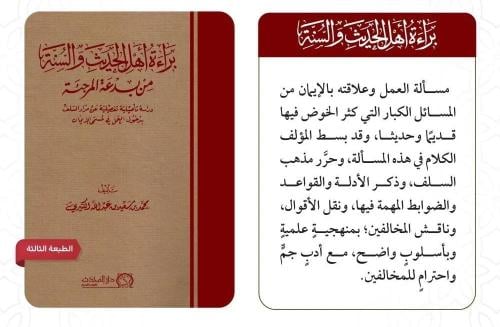 براءة أهل الحديث والسنة
من بدعة المرجئة
دراسة تأصيلية تفصيلية عن مراد السلف
بدخول العمل في مسمى الإيمان
تأليف
محمد بن سعيد بن عبد الله الكثيري
الطبعة الثالثة
دار المحدث
براءة أهل الحديث والسنة
مسألة العمل وعلاقته بالإيمان من
المسائل الكبار التي كثر الخوض فيها
قديمًا وحديثًا، وقد بسط المؤلف
الكلام في هذه المسألة، وحرَّر مذهب
السلف، وذكر الأدلة والقواعد
والضوابط المهمة فيها، ونقل الأقوال،
وناقش المخالفين؛ بمنهجيةٍ علميةٍ
وبأسلوبٍ واضح، مع أدبٍ جمٍّ
واحترامٍ للمخالفين.